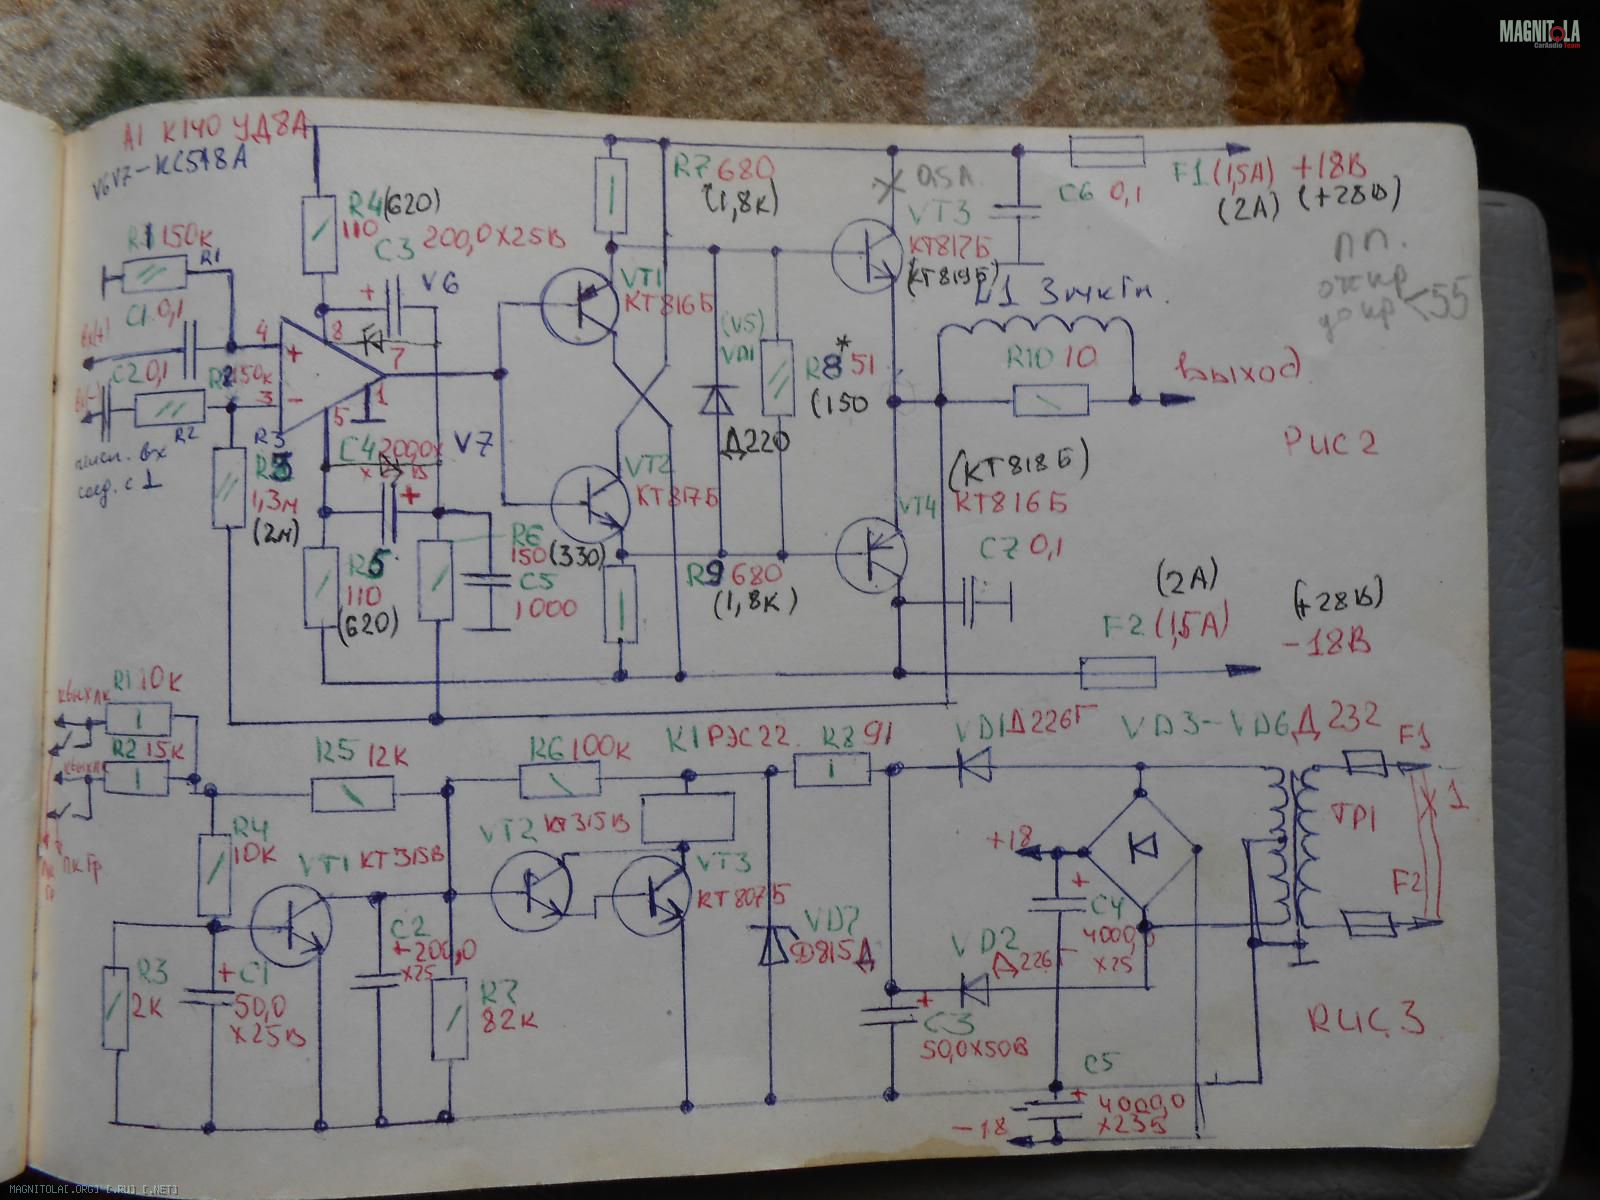 MAGNITOLA
CarAudio Team
A1 К140 УД8А
V6V7-КС518А
R1 150к
R1
C1 0,1
вх(+)
C2 0,1
R2 150к
вх(-)
R2
соед. с 1
4
+
3
-
8
7
5
1
R4 (620)
110
C3 200,0X25В
V6
R3
R3
1,3м
(2м)
C4 200,0х
V7
R5
110
(620)
R6
150 (330)
C5
1000
VT1
КТ816Б
VT2
КТ817Б
R7 680
(1,8к)
(V5)
VD1
Д220
R8* 51
(150
R9 680
(1,8к)
0,5А.
VT3
КТ817Б
(КТ819Б)
L1
C6 0,1
F1 (1,5А) +18В
(2А) (+28В)
ПП.
55
R10 10
Выход
РИС 2
(КТ818Б)
VT4 КТ816Б
C7 0,1
(2А)
F2 (1,5А)
(+28В)
-18В
R1 10к
R2 15к
R5 12К
R6 100к
К1 РЭС22
R8 91
VD1 Д226Г
VD3-VD6 Д232
F1
R4
10к
VT1 КТ315В
VT2 КТ315В
VT3
КТ807Б
+18
ТР1
1
F2
R3
2К
+ C1
50,0
X25В
C2
+200,0
X25
R7
82к
VD7
Д815Д
VD2
Д226Г
+
C4
4000,0
X25
+
C3
50,0X50В
РИС.3
C5
+
4000,0
X25В
-18
MAGNITOLA[.ORG] [.RU] [.NET]